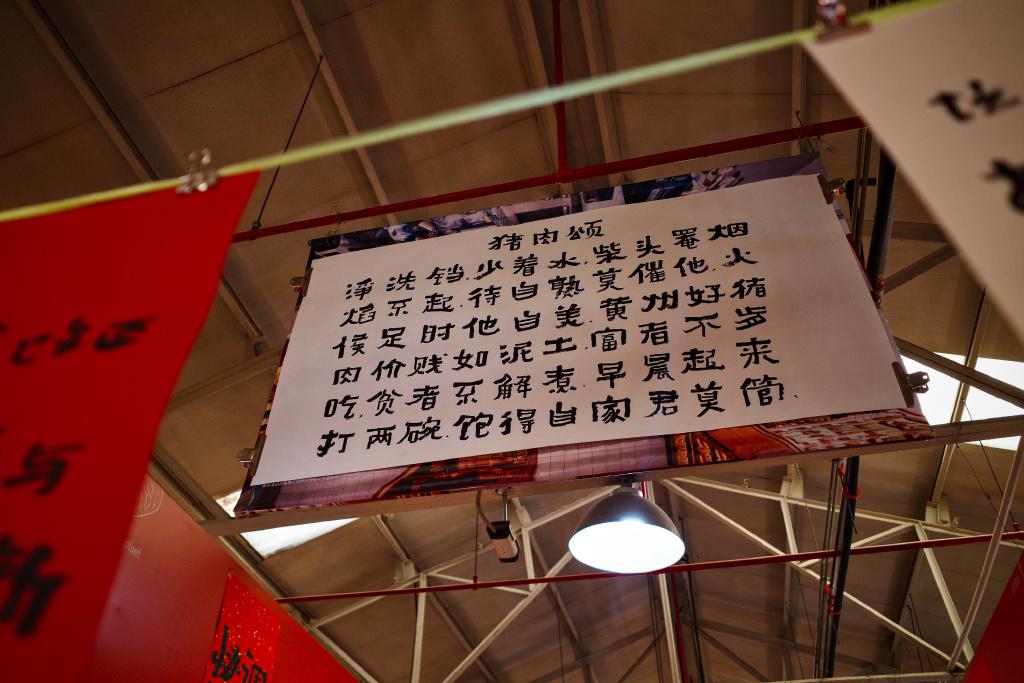 猪肉颂
淨洗铛.少着水.柴头罨烟
焰不起.待自熟莫催他.火
候足时他自美.黄州好猪
肉价贱如泥土.富者不肯
吃.贫者不解煮.早晨起来
打两碗.饱得自家君莫管.
与
新
协调